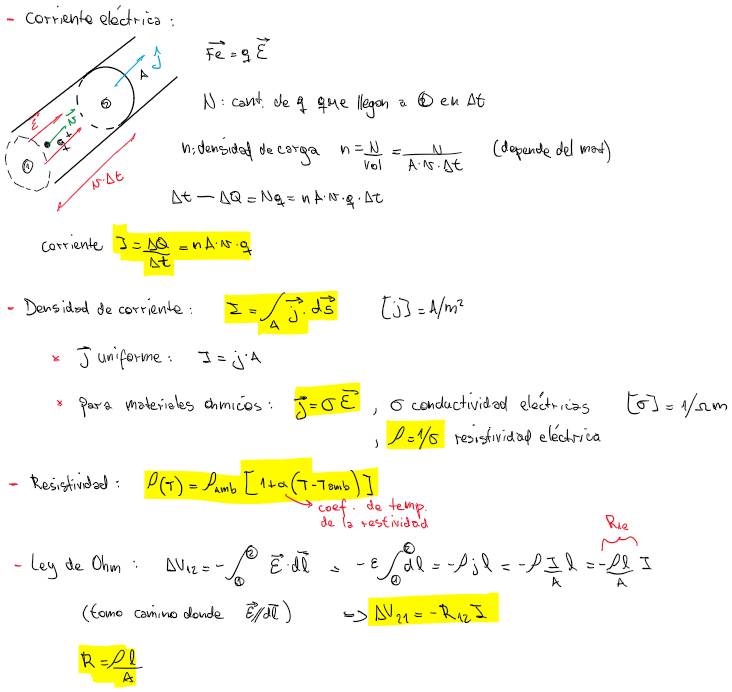 - Corriente eléctrica:
j⃗
A
②
E⃗
v⃗
q+
①
v·Δt
F⃗e = q E⃗
N: cant. de q que llegan a ② en Δt
n: densidad de carga n = N/vol = N/(A·v·Δt) (depende del mat)
Δt — ΔQ = Nq = n A·v·q·Δt
corriente I = ΔQ/Δt = n A·v·q
- Densidad de corriente: I = ∫_A j⃗ · ds⃗ [j] = A/m²
* j⃗ uniforme: I = j·A
* para materiales ohmicos: j⃗ = σ E⃗ , σ conductividad eléctricas [σ] = 1/Ωm
, ρ = 1/σ resistividad eléctrica
- Resistividad: ρ(T) = ρamb [1 + α (T - Tamb)]
coef. de temp.
de la restividad
R₁₂
- Ley de Ohm: ΔV₁₂ = - ∫_①^② E⃗ · dl⃗ = - E ∫_①^② dl = - ρ j l = - ρ I/A l = - ρl/A I
(tomo camino donde E⃗ // dl⃗) => ΔV₂₁ = - R₁₂ I
R = ρ l/A